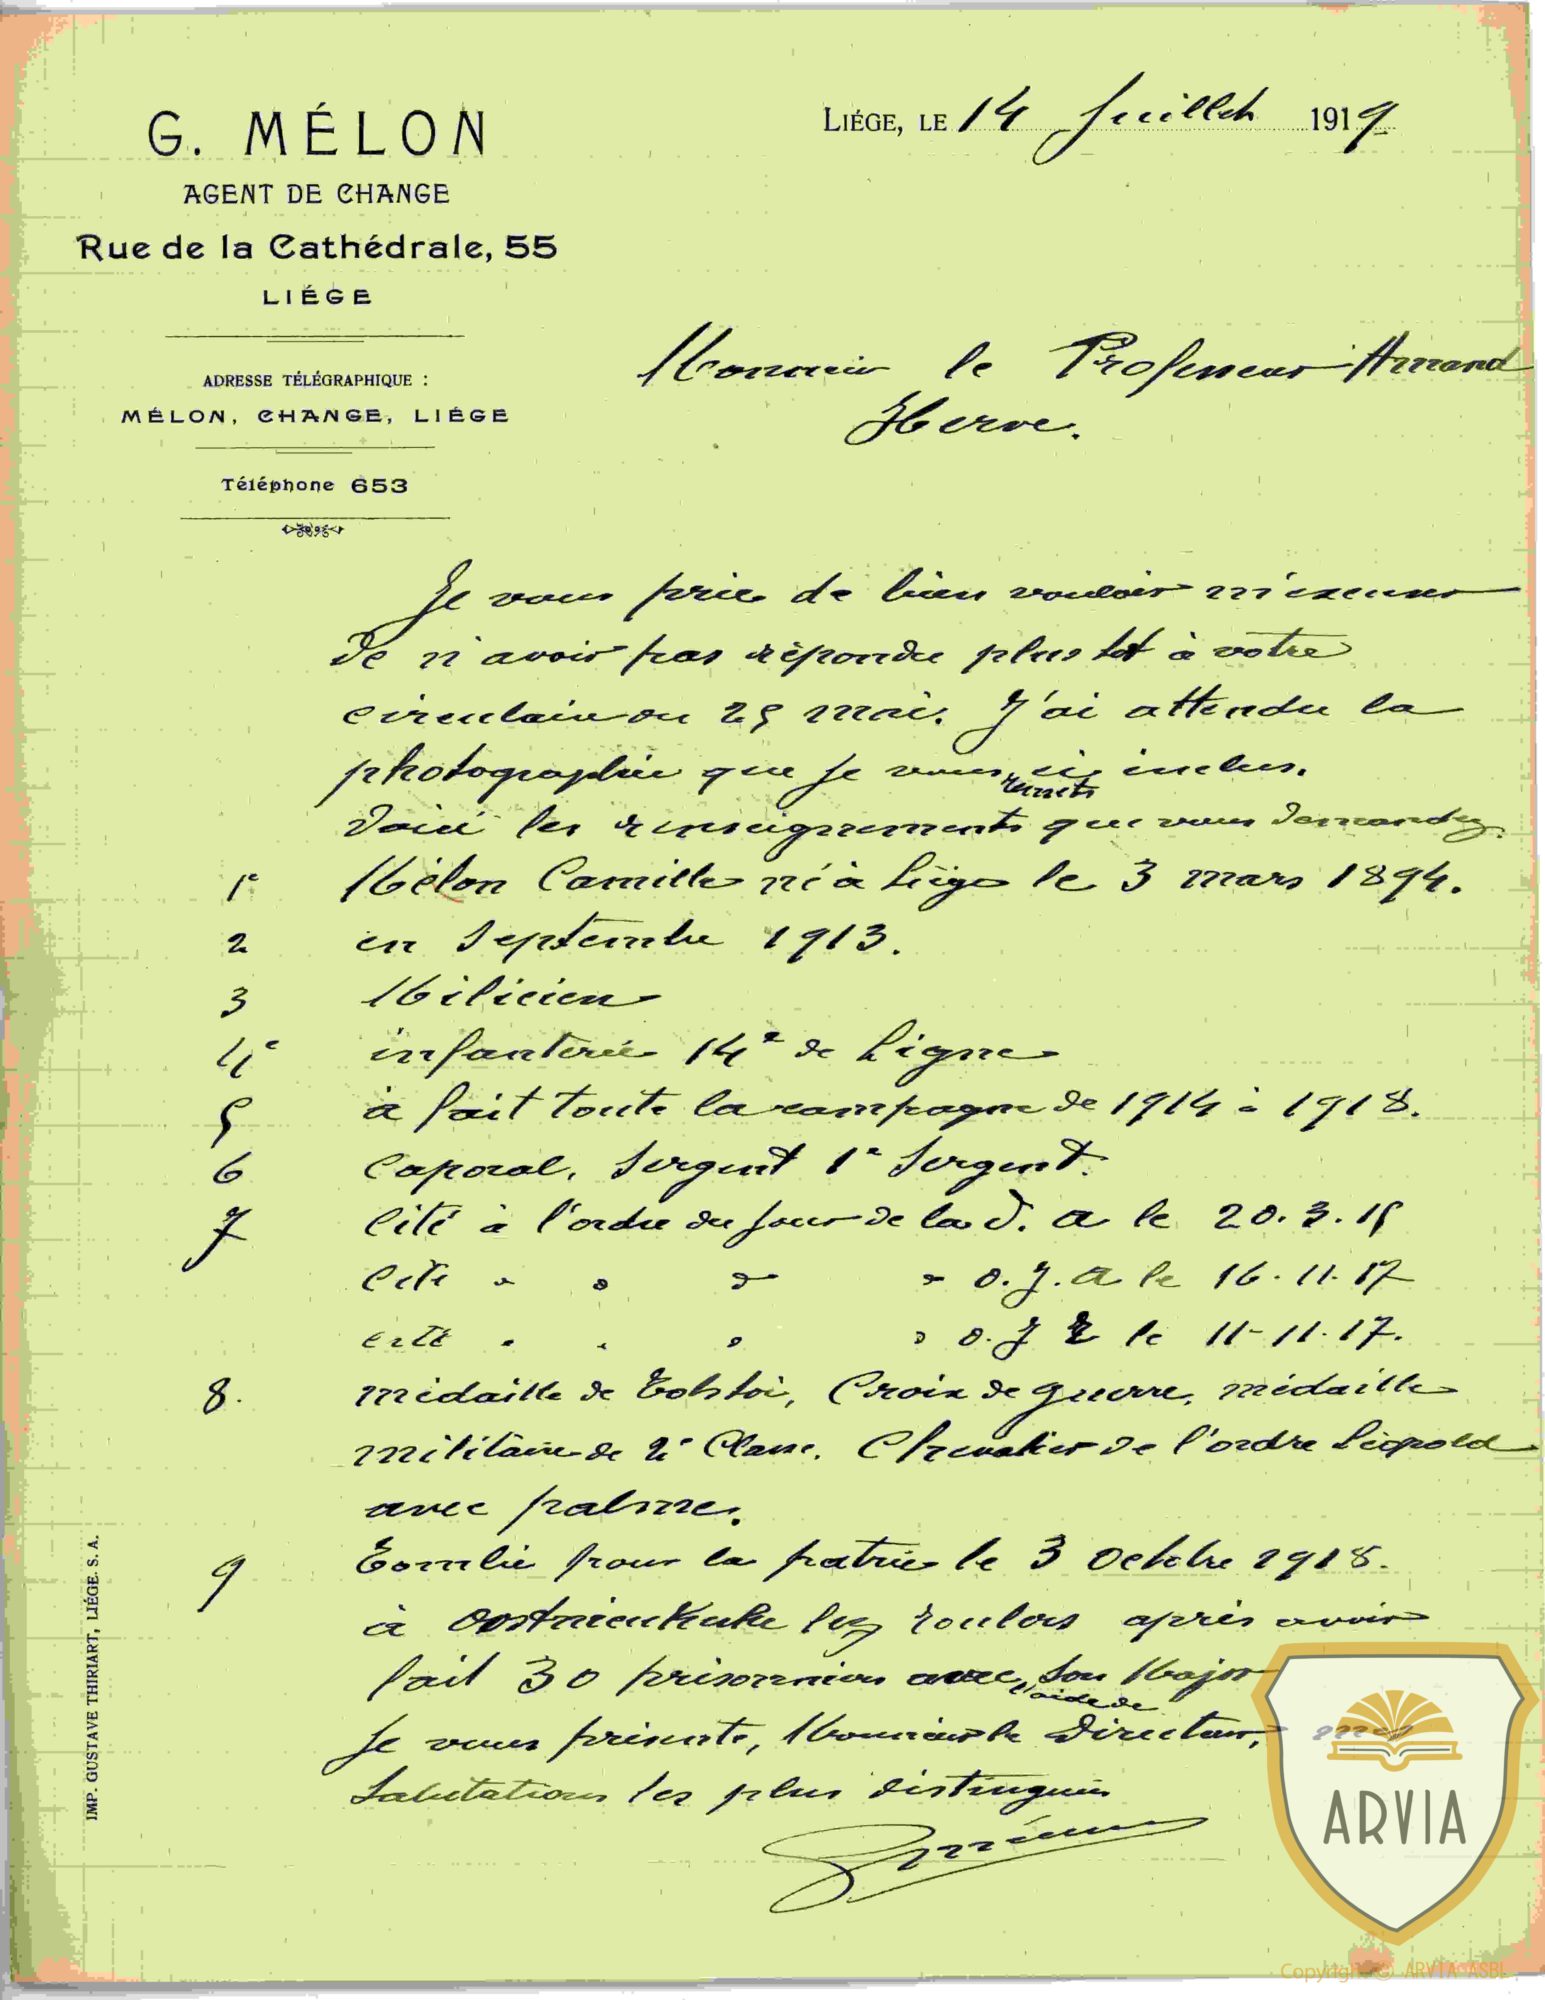 G. MÉLON
AGENT DE CHANGE
Rue de la Cathédrale, 55
LIÉGE
ADRESSE TÉLÉGRAPHIQUE :
MÉLON, CHANGE, LIÉGE
Téléphone 653
LIÉGE, LE 14 Juillet 1919
Monsieur le Professeur Amand
Herve.
Je vous prie de bien vouloir m'excuser
de n'avoir pas répondu plus tot à votre
circulaire du 25 mai. J'ai attendu la
photographie que je vous remets ci inclus.
Voici les renseignements que vous demandez.
1e Mélon Camille né à Liége le 3 mars 1894.
2 en Septembre 1913.
3 Milicien
4e infanterie 14e de Ligne
5 à fait toute la campagne de 1914 à 1918.
6 Caporal, Sergent 1e Sergent.
7 Cité à l'ordre du jour de la D. A le 20.3.15
Cité " " " " O. J. A le 16.11.17
cité " " " " O. J le 11-11.17.
8. médaille de Tolstoi, Croix de guerre, médaille
militaire de 2e Classe. Chevalier de l'ordre Léopold
avec palme.
9 Tombé pour la patrie le 3 Octobre 1918.
à Oostnieukerke lez Roulers après avoir
fait 30 prisonniers avec l'aide de son Major
Je vous présente, Monsieur le Directeur, mes
Salutations les plus distinguées
IMP. GUSTAVE THIRIART, LIÉGE. S. A.
ARVIA
Copyright © ARVIA ASBL